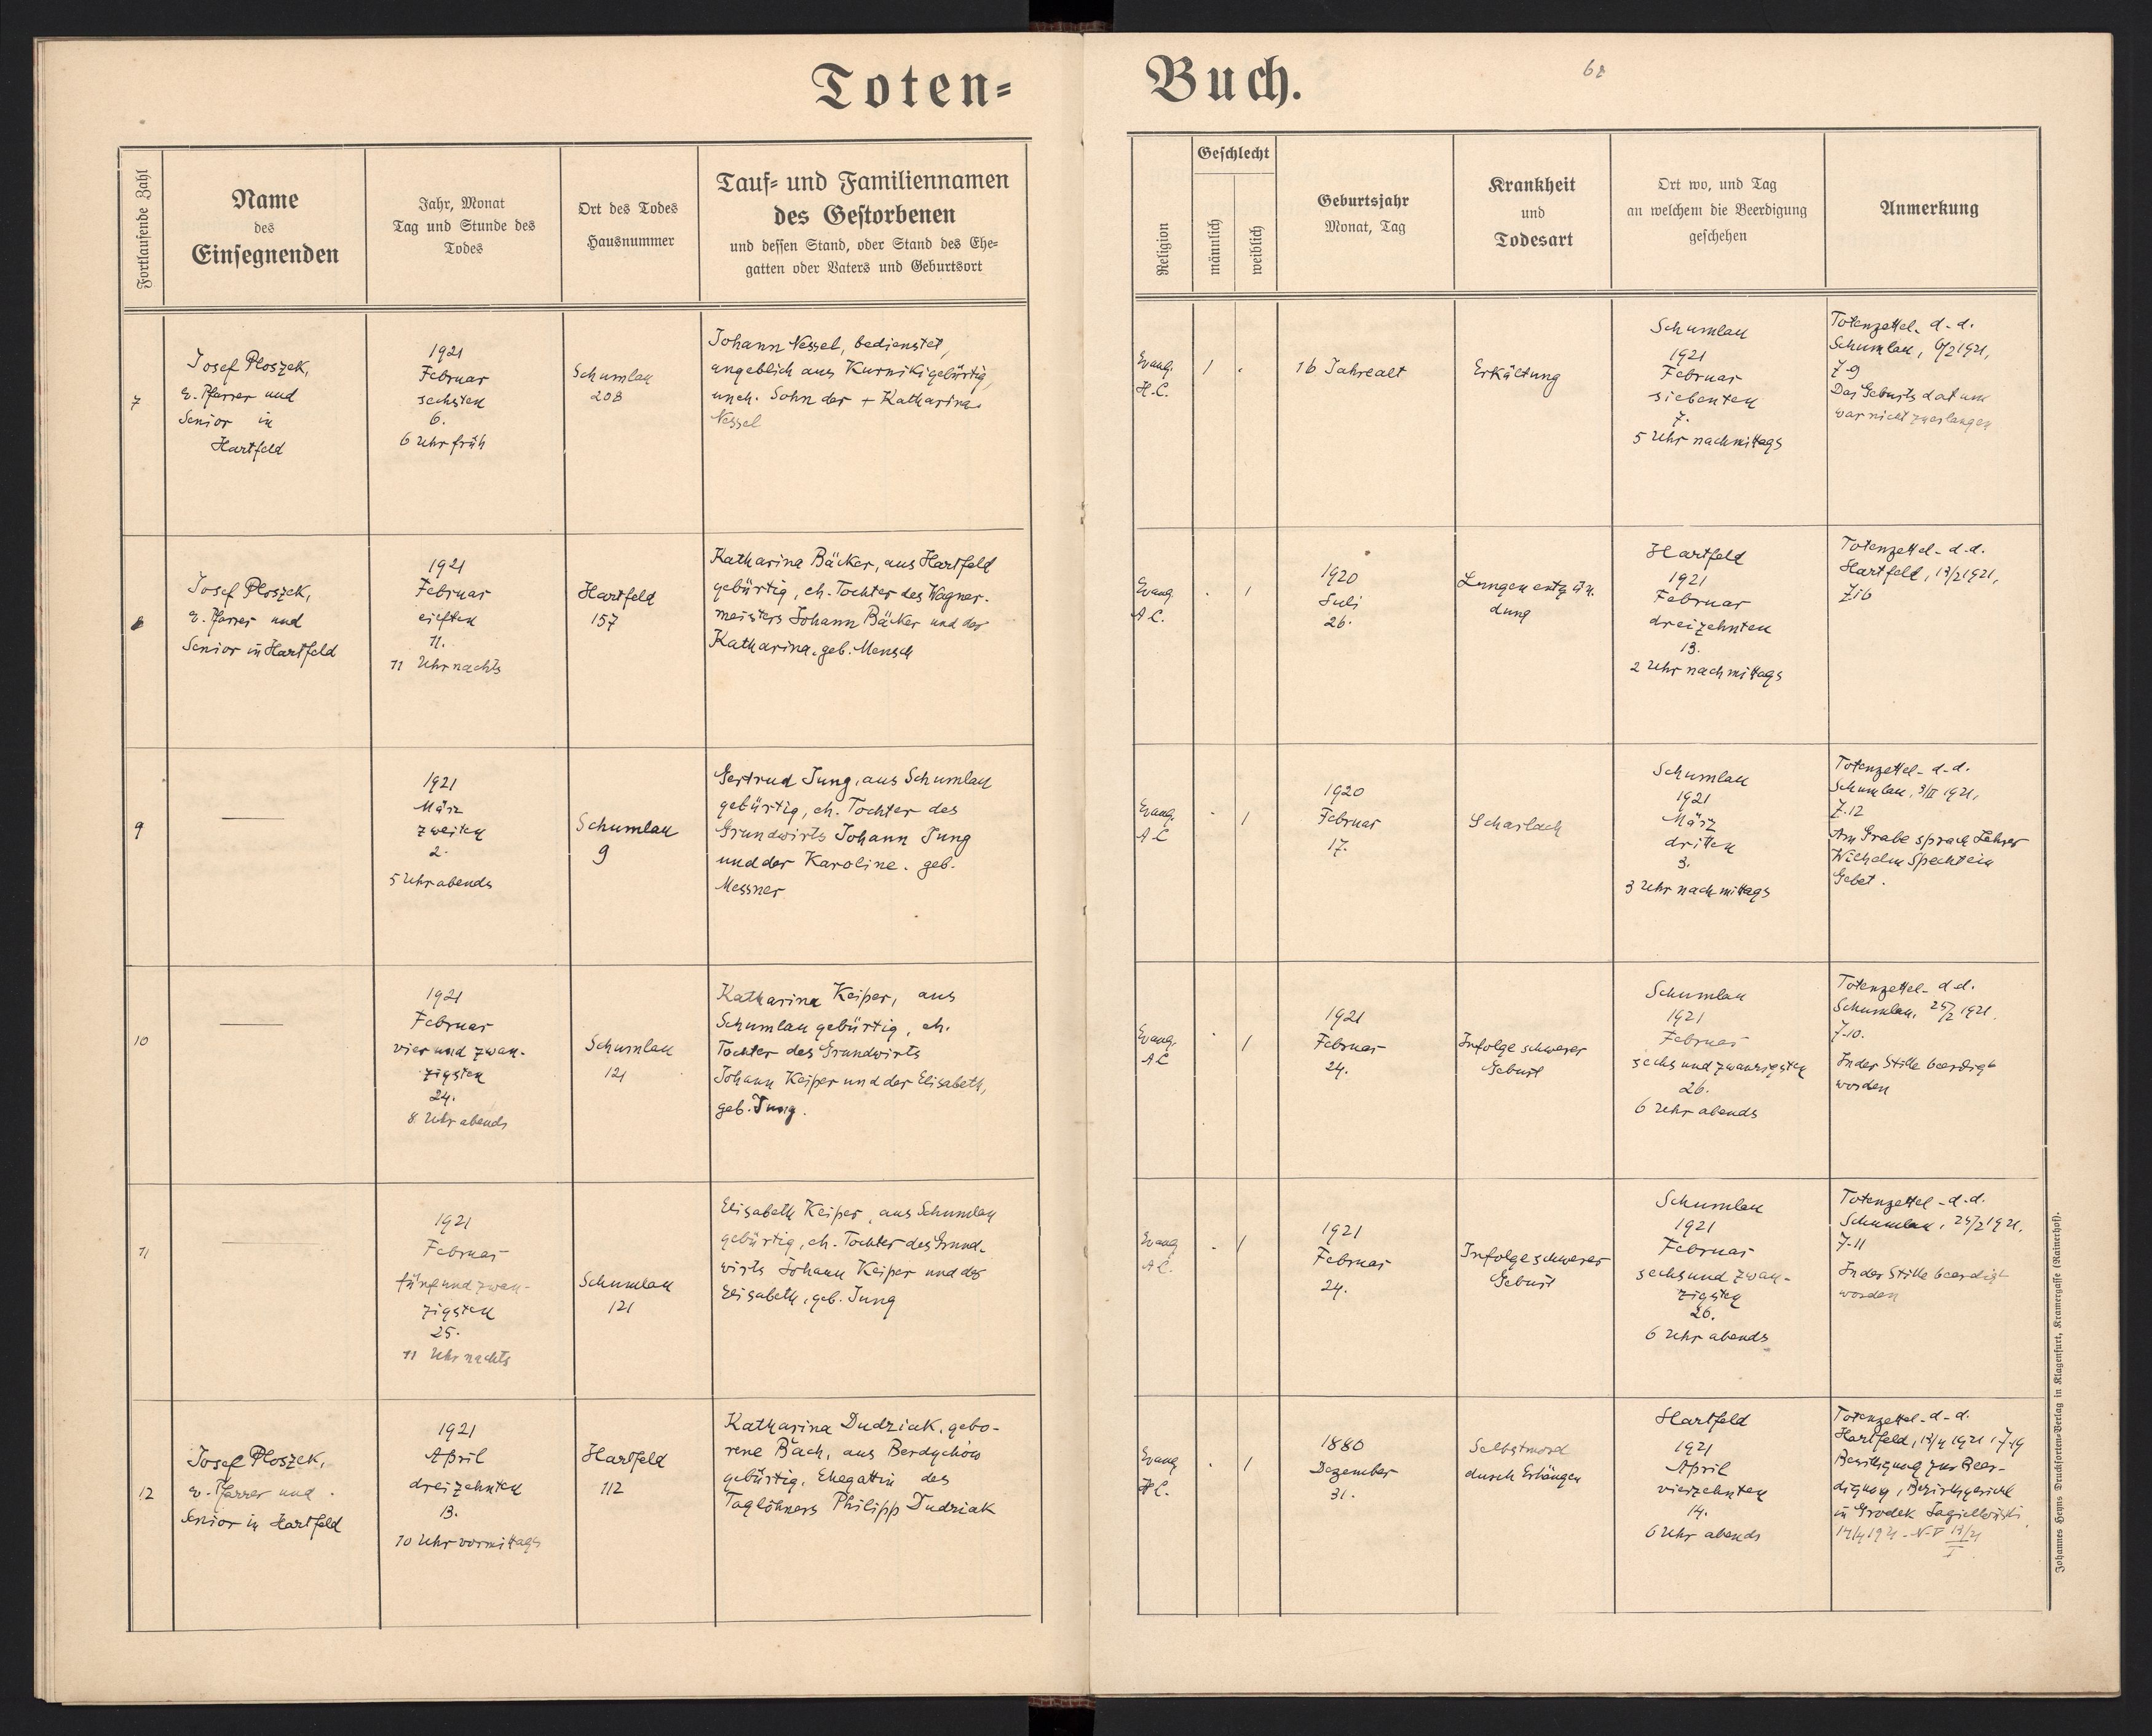 Toten=
Buch.
68
Fortlaufende Zahl
Name
des
Einsegnenden
Jahr, Monat
Tag und Stunde des
Todes
Ort des Todes
Hausnummer
Tauf= und Familiennamen
des Gestorbenen
und dessen Stand, oder Stand des Ehe=
gatten oder Vaters und Geburtsort
Religion
Geschlecht
männlich
weiblich
Geburtsjahr
Monat, Tag
Krankheit
und
Todesart
Ort wo, und Tag
an welchem die Beerdigung
geschehen
Anmerkung
7
Josef Ploszek,
ev. Pfarrer und
Senior in
Hartfeld
1921
Februar
sechsten
6.
6 Uhr früh
Schumlau
208
Johann Nessel, bedienstet,
angeblich aus Kurniki gebürtig,
uneh. Sohn der + Katharina
Nessel
Evang.
H.C.
1
16 Jahre alt
Erkältung
Schumlau
1921
Februar
siebenten
7.
5 Uhr nachmittags
Totenzettel d-d.
Schumlau, 6/2 1921,
Z-9
Das Geburtsdatum
war nicht zu erlangen
8
Josef Ploszek,
ev. Pfarrer und
Senior in Hartfeld
1921
Februar
elften
11.
11 Uhr nachts
Hartfeld
157
Katharina Bäcker, aus Hartfeld
gebürtig, eh. Tochter des Wagner-
meisters Johann Bäcker und der
Katharina, geb. Mensch
Evang.
A.C.
1
1920
Juli
26.
Lungenentzün-
dung
Hartfeld
1921
Februar
dreizehnten
13.
2 Uhr nachmittags
Totenzettel d.d.
Hartfeld, 13/2 1921,
Z 16
9
1921
März
zweiten
2.
5 Uhr abends
Schumlau
9
Gertrud Jung, aus Schumlau
gebürtig, eh. Tochter des
Grundwirts Johann Jung
und der Karoline, geb.
Messner
Evang.
A.C
1
1920
Februar
17.
Scharlach
Schumlau
1921
März
dritten
3.
3 Uhr nachmittags
Totenzettel d-d.
Schumlau, 3/III 1921,
Z.12
Am Grabe sprach Lehrer
Wilhelm Specht ein
Gebet.
10
1921
Februar
vierundzwan-
zigsten
24.
8 Uhr abends
Schumlau
121
Katharina Keiper, aus
Schumlau gebürtig, eh.
Tochter des Grundwirts
Johann Keiper und der Elisabeth,
geb. Jung.
Evang.
A.C
1
1921
Februar
24.
Infolge schwerer
Geburt
Schumlau
1921
Februar
sechsundzwanzigsten
26.
6 Uhr abends
Totenzettel d.d.
Schumlau, 25/2 1921.
Z-10.
In der Stille beerdigt
worden
11
1921
Februar
fünfundzwan-
zigsten
25.
11 Uhr nachts
Schumlau
121
Elisabeth Keiper, aus Schumlau
gebürtig, eh. Tochter des Grund-
wirts Johann Keiper und der
Elisabeth, geb. Jung
Evang
A.C.
1
1921
Februar
24.
Infolge schwerer
Geburt
Schumlau
1921
Februar
sechsundzwan-
zigsten
26.
6 Uhr abends
Totenzettel d.d.
Schumlau, 25/2 1921.
Z-11
In der Stille beerdigt
worden
12
Josef Ploszek,
ev. Pfarrer und
Senior in Hartfeld
1921
April
dreizehnten
13.
10 Uhr vormittags
Hartfeld
112
Katharina Dudziak, gebo-
rene Bach, aus Berdychów
gebürtig, Ehegattin des
Taglöhners Philipp Dudziak
Evang
H.C.
1
1880
Dezember
31.
Selbstmord
durch Erhängen
Hartfeld
1921
April
vierzehnten
14.
6 Uhr abends
Totenzettel d-d.
Hartfeld, 13/4 1921, Z-19
Bewilligung zur Beer-
digung, Bezirksgericht
in Grodek Jagielloński
14/4 1921
Johannes Heyns Drucksorten=Verlag in Klagenfurt, Kramergasse (Rainerhof).